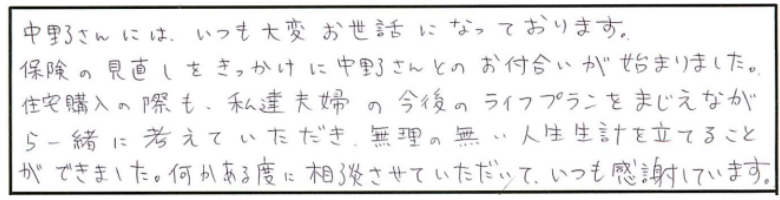 中野さんには、いつも大変お世話になっております。
保険の見直しをきっかけに中野さんとのお付合いが始まりました。
住宅購入の際も、私達夫婦の今後のライフプランをまじえなが
ら一緒に考えていただき、無理の無い人生生計を立てること
ができました。何かある度に相談させていただいて、いつも感謝しています。